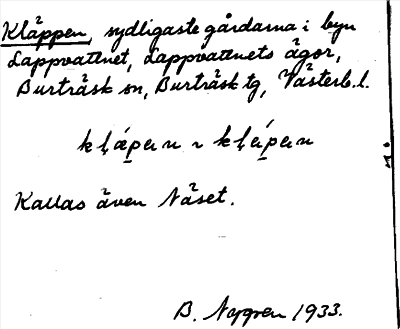 Kläppen, sydligaste gårdarna i byn
Lappvattnet, Lappvattnets ägor,
Burträsk sn, Burträsk tg, Västerb. l.
Kallas även Näset.
B. Nygren 1933.